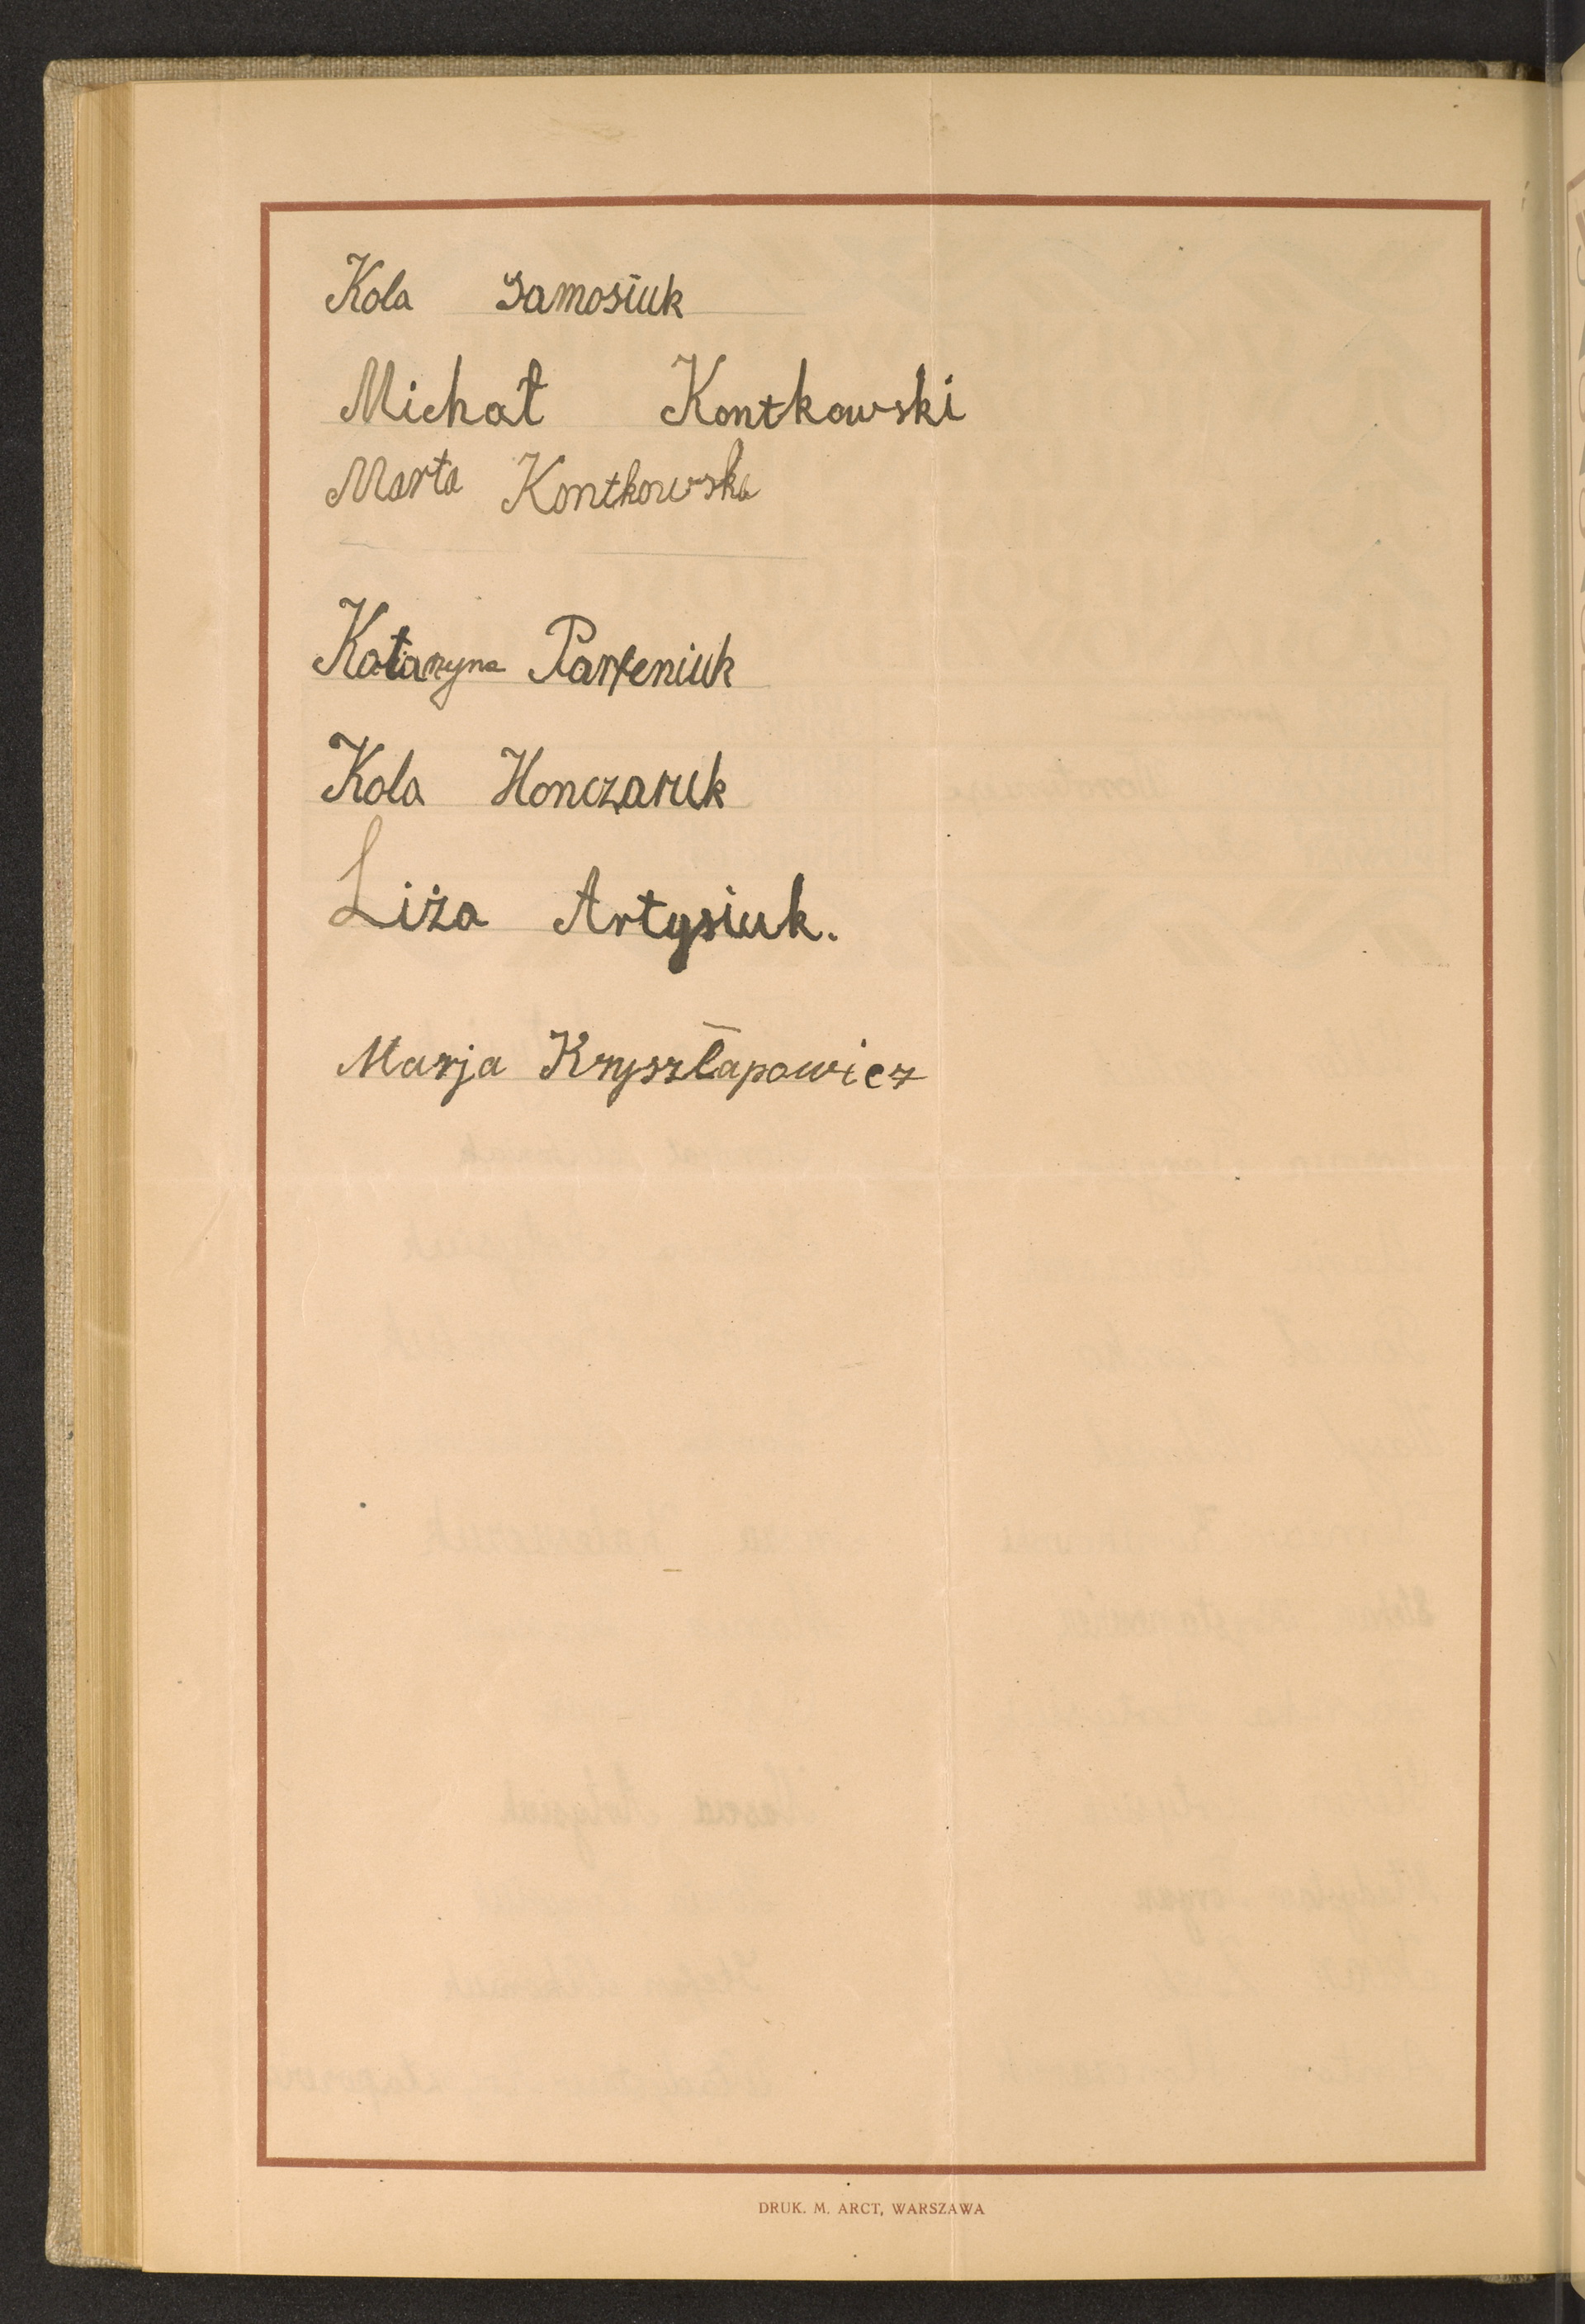 Kola Samosiuk
Michał Kontkowski
Marta Kontkowska
Kataryna Parfeniuk
Kola Honczaruk
Liża Artysiuk.
Marja Kryszłapowicz
DRUK. M. ARCT, WARSZAWA